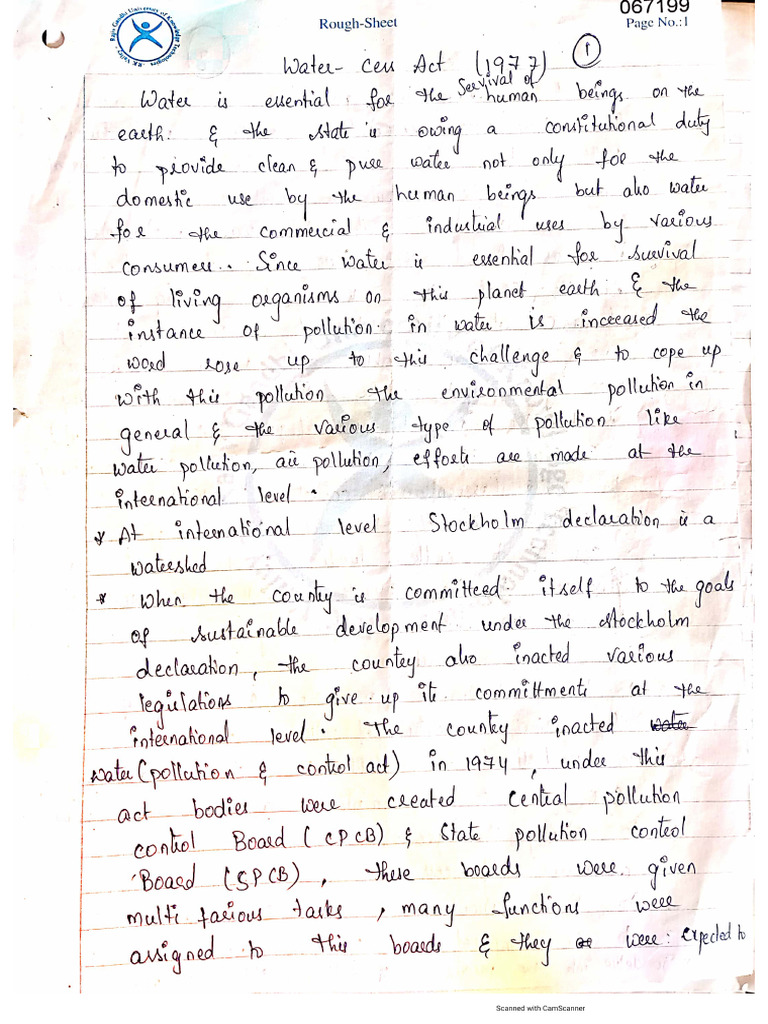 067199
Rajiv Gandhi University of Knowledge Technologies
RK Valley
Rough-Sheet
Page No.:1
Water- Cess Act (1977) 1
Survival of
Water is essential for the human beings on the
earth. & the state is owing a constitutional duty
to provide clean & pure water not only for the
domestic use by the human beings but also water
for the commercial & industrial uses by various
consumers.. Since water is essential for survival
of living organisms on this planet earth & the
instance of pollution in water is increased the
word rose up to this challenge & to cope up
with this pollution the environmental pollution in
general & the various type of pollution like
water pollution, air pollution, efforts are made at the
international level.
* At international level Stockholm declaration is a
watershed
* When the country is committeed itself to the goals
of sustainable development under the stockholm
declaration, the country also inacted various
regulations to give up its committments at the
international level. The country inacted water
water (pollution & control act) in 1974, under this
act bodies were created Central pollution
control Board (CPCB) & State pollution control
Board (SPCB), these boards were given
multi farious tasks, many functions were
assigned to this boards & they were: expected to
Scanned with CamScanner